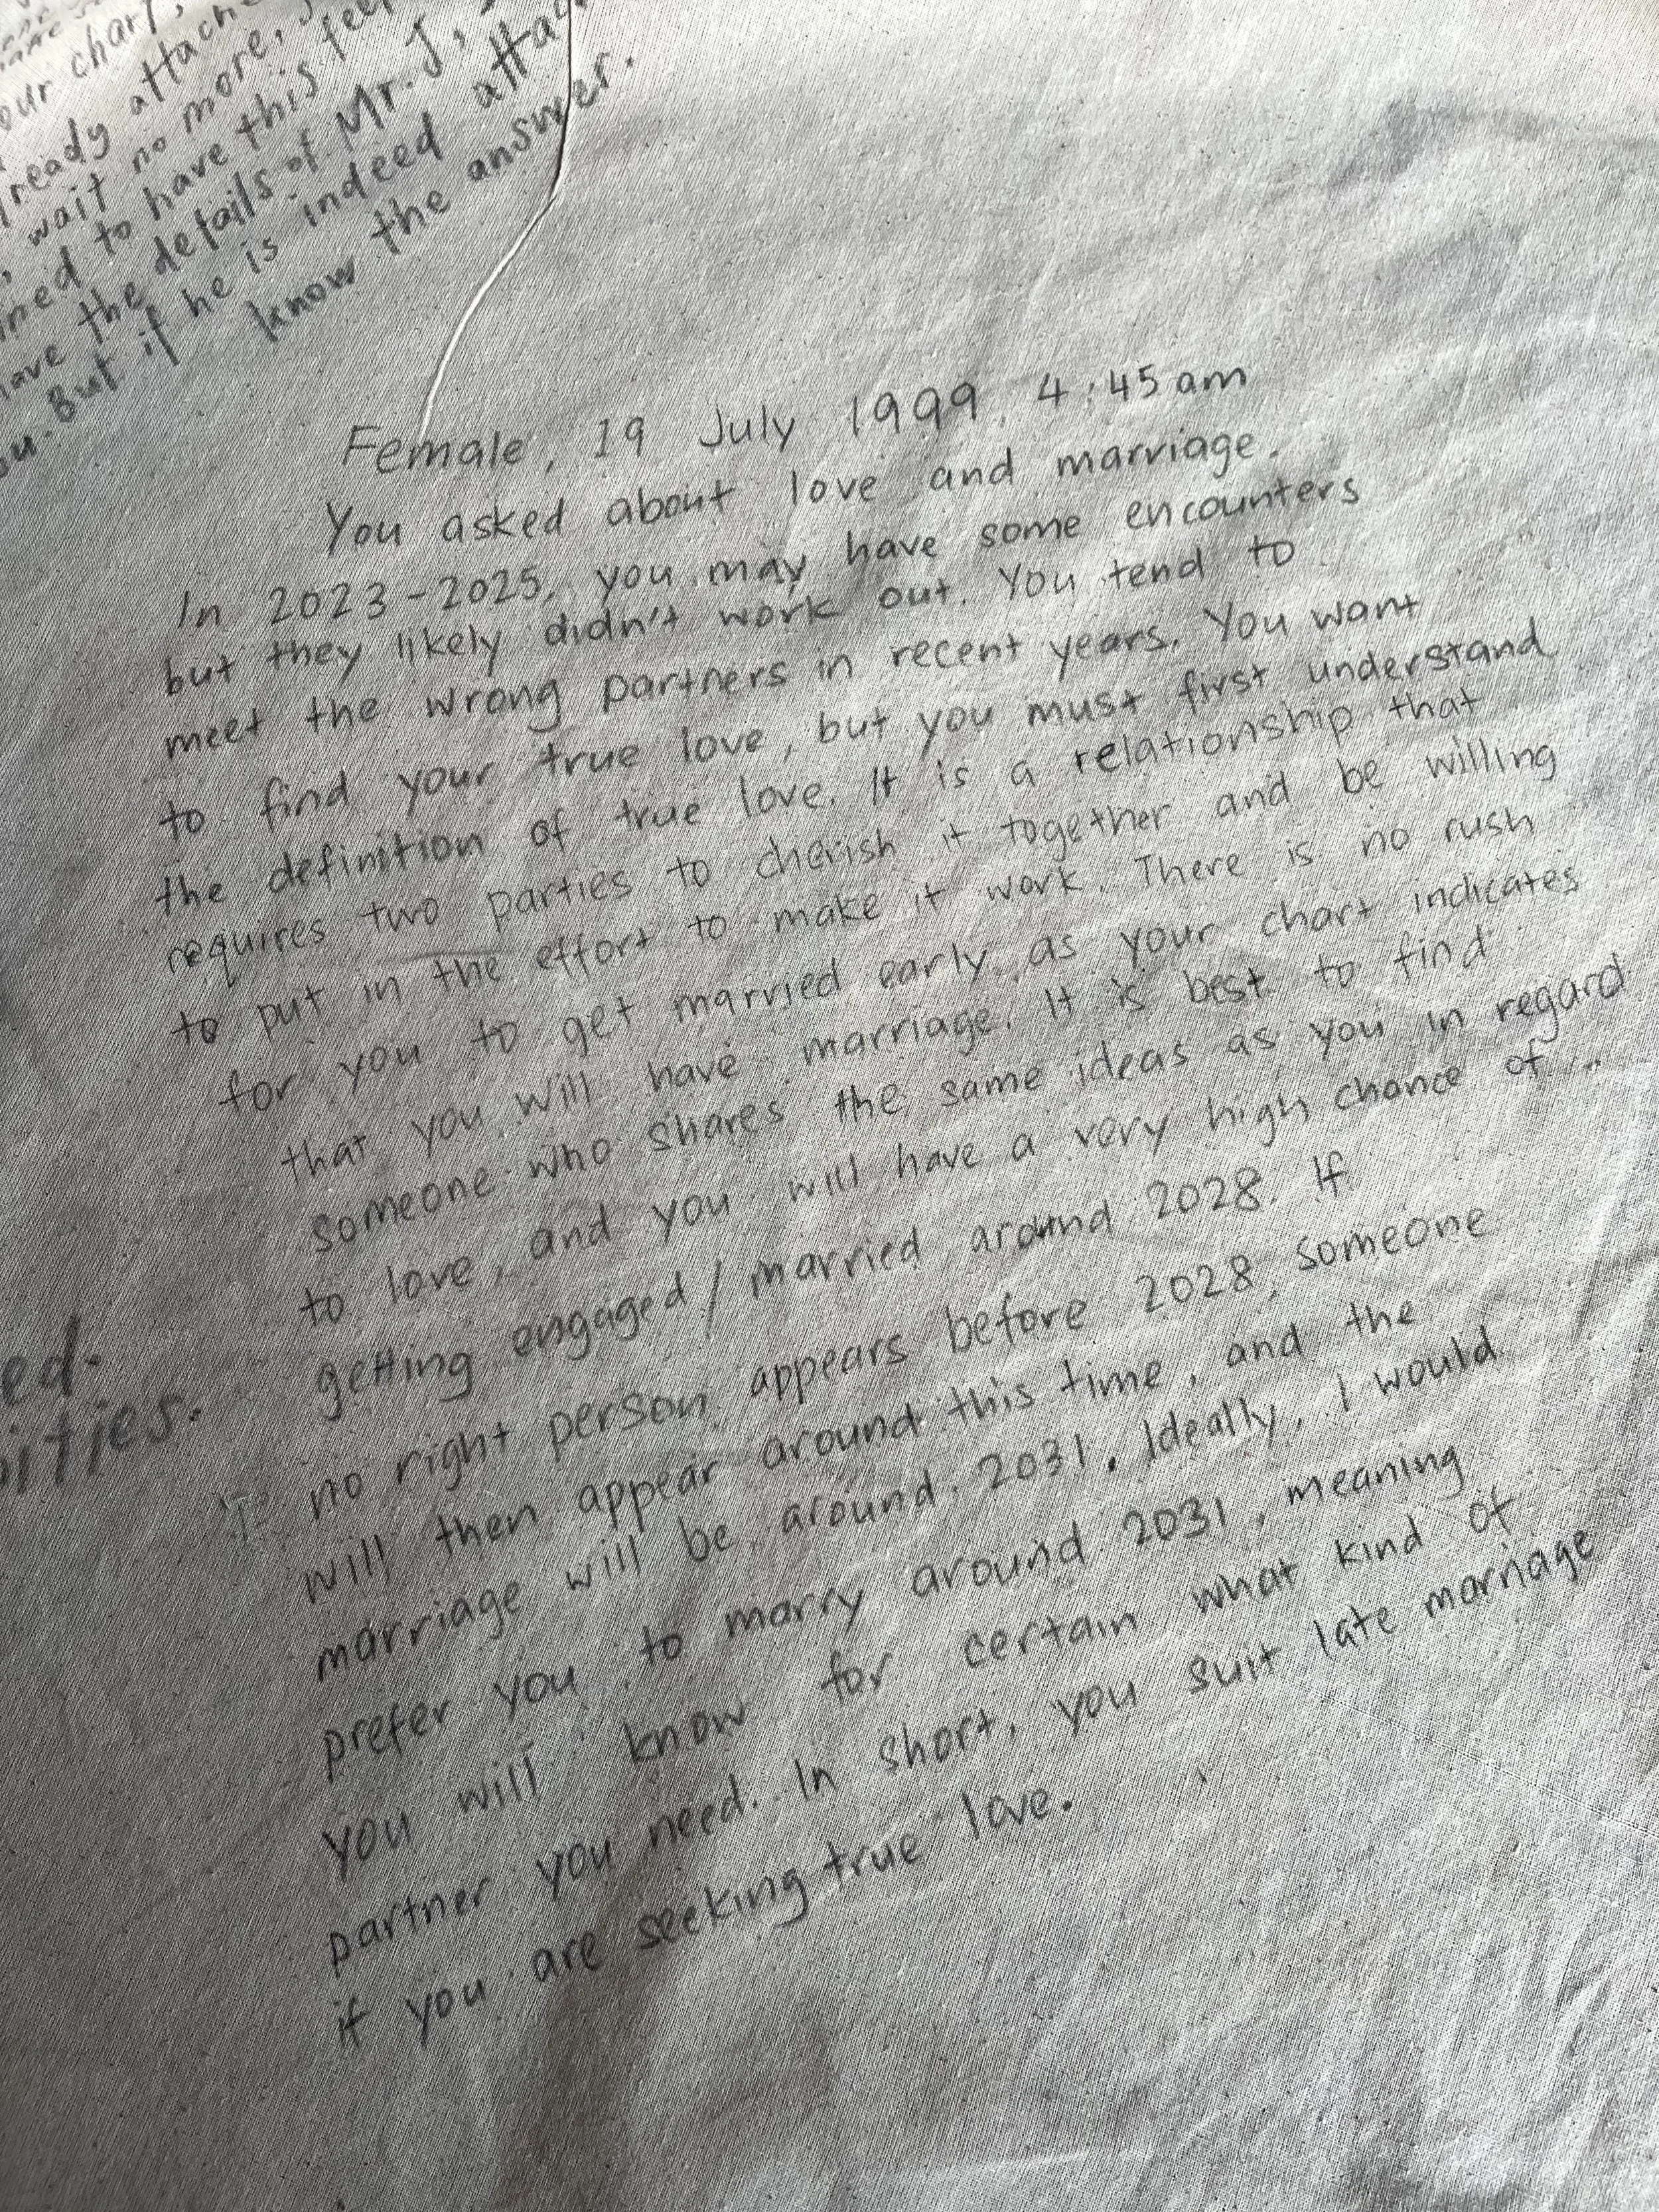 our chart,
ready attache
wait no more,
ined to have this feel
have the details of Mr. J,
ou. But if he is indeed attac
know the answer.
Female, 19 July 1999, 4:45am
You asked about love and marriage.
In 2023-2025, you may have some encounters
but they likely didn't work out. You tend to
meet the wrong partners in recent years. You want
to find your true love, but you must first understand
the definition of true love. It is a relationship that
requires two parties to cherish it together and be willing
to put in the effort to make it work. There is no rush
for you to get married early as your chart indicates
that you will have marriage. It is best to find
someone who shares the same ideas as you in regard
to love, and you will have a very high chance of
getting engaged/married around 2028. If
no right person appears before 2028, someone
will then appear around this time, and the
marriage will be around 2031. Ideally, I would
prefer you to marry around 2031, meaning
you will know for certain what kind of
partner you need. In short, you suit late marriage
if you are seeking true love.
ed.
ities.